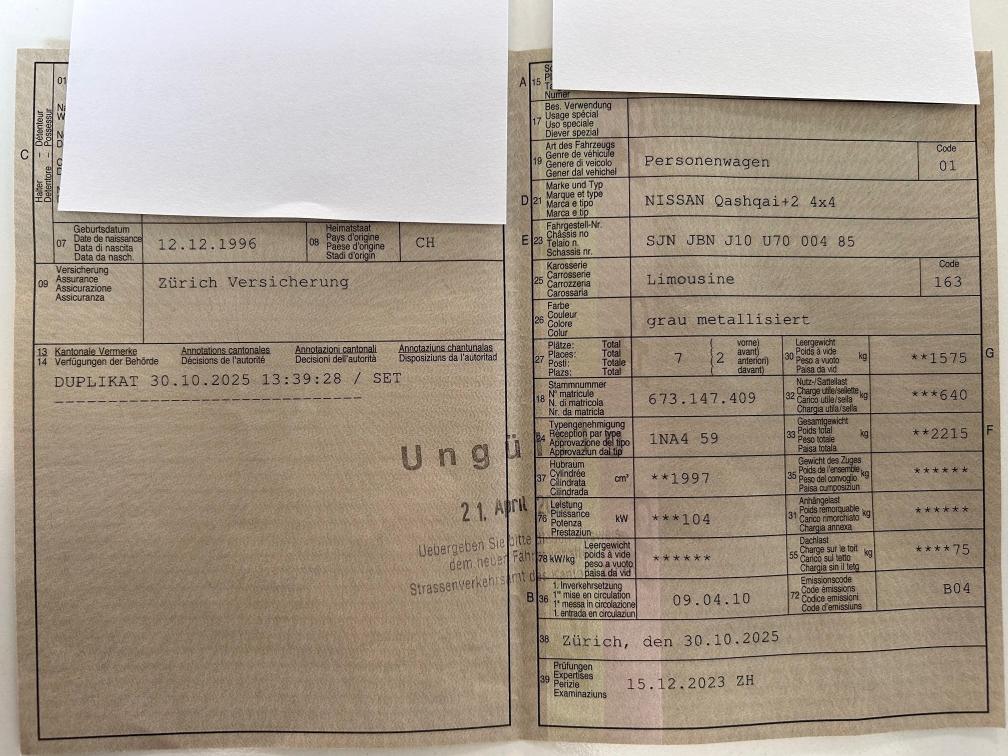 C
Halter – Détenteur
Detentore – Possessur
01
07 Geburtsdatum
Date de naissance
Data di nascita
Data da nasch.
12.12.1996
08 Heimatstaat
Pays d'origine
Paese d'origine
Stadi d'origin
CH
09 Versicherung
Assurance
Assicurazione
Assicuranza
Zürich Versicherung
13 Kantonale Vermerke Annotations cantonales Annotazioni cantonali Annotaziuns chantunalas
14 Verfügungen der Behörde Décisions de l'autorité Decisioni dell'autorità Disposiziuns da l'autoritad
DUPLIKAT 30.10.2025 13:39:28 / SET
Ungü
21. April
Uebergeben Sie bitte
dem neuen
Strassenverkehrsamt des
A 15
Numer
17 Bes. Verwendung
Usage spécial
Uso speciale
Diever spezial
19 Art des Fahrzeugs
Genre de véhicule
Genere di veicolo
Gener dal vehichel
Personenwagen
Code
01
D 21 Marke und Typ
Marque et type
Marca e tipo
Marca e tip
NISSAN Qashqai+2 4x4
E 23 Fahrgestell-Nr.
Châssis no
Telaio n.
Schassis nr.
SJN JBN J10 U70 004 85
25 Karosserie
Carrosserie
Carrozzeria
Carossaria
Limousine
Code
163
26 Farbe
Couleur
Colore
Colur
grau metallisiert
27 Plätze: Total
Places: Total
Posti: Totale
Plazs: Total
7
2
vorne)
avant)
anteriori)
davant)
30 Leergewicht
Poids à vide
Peso a vuoto
Paisa da vid
kg
**1575
G
18 Stammnummer
N° matricule
N. di matricola
Nr. da matricla
673.147.409
32 Nutz-/Sattellast
Charge utile/sellette
Carico utile/sella
Chargia utila/sella
kg
***640
24 Typengenehmigung
Réception par type
Approvazione del tipo
Approvaziun dal tip
1NA4 59
33 Gesamtgewicht
Poids total
Peso totale
Paisa totala
kg
**2215
F
37 Hubraum
Cylindrée
Cilindrata
Cilindrada
cm³
**1997
35 Gewicht des Zuges
Poids de l'ensemble
Peso del convoglio
Paisa cumposiziun
kg
******
76 Leistung
Puissance
Potenza
Prestaziun
kW
***104
31 Anhängelast
Poids remorquable
Carico rimorchiato
Chargia annexa
kg
******
78 kW/kg Leergewicht
poids à vide
peso a vuoto
paisa da vid
******
55 Dachlast
Charge sur le toit
Carico sul tetto
Chargia sin il tetg
kg
****75
B 36 1. Inverkehrsetzung
1re mise en circulation
1a messa in circolazione
1. entrada en circulaziun
09.04.10
72 Emissionscode
Code émissions
Codice emissioni
Code d'emissiuns
B04
38 Zürich, den 30.10.2025
39 Prüfungen
Expertises
Perizie
Examinaziuns
15.12.2023 ZH